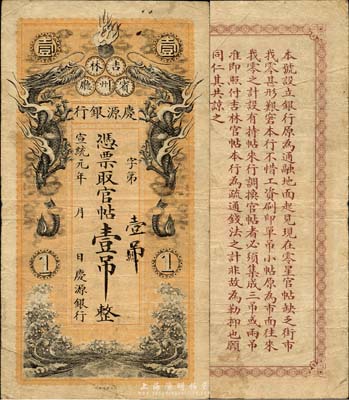 壹 壹
吉林
賓州廳
慶源銀行
字第
壹吊
憑票取官帖壹吊整
宣統元年 月 日慶源銀行
1 1
本號設立銀行原為通融地面起見現在零星官帖缺乏街市
我零甚形艱窘本行不惜工資刷印單吊小帖原為市面往來
我零之計設有持帖來行調換官帖者必須集成三吊或兩吊
准即照付吉林官帖本行為疏通錢法之計非故為勒抑也願
同仁其共諒之